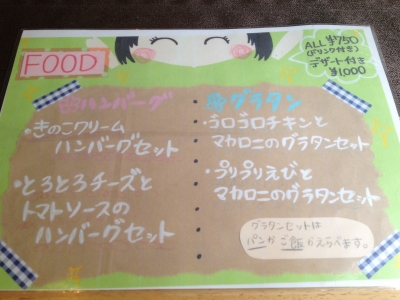 FOOD
ALL ¥750
(ドリンク付き)
デザート付き
¥1,000
ハンバーグ
・きのこクリーム
ハンバーグセット
・とろとろチーズと
トマトソースの
ハンバーグセット
グラタン
・ゴロゴロチキンと
マカロニのグラタンセット
・プリプリえびと
マカロニのグラタンセット
グラタンセットは
パンかご飯かえらべます。